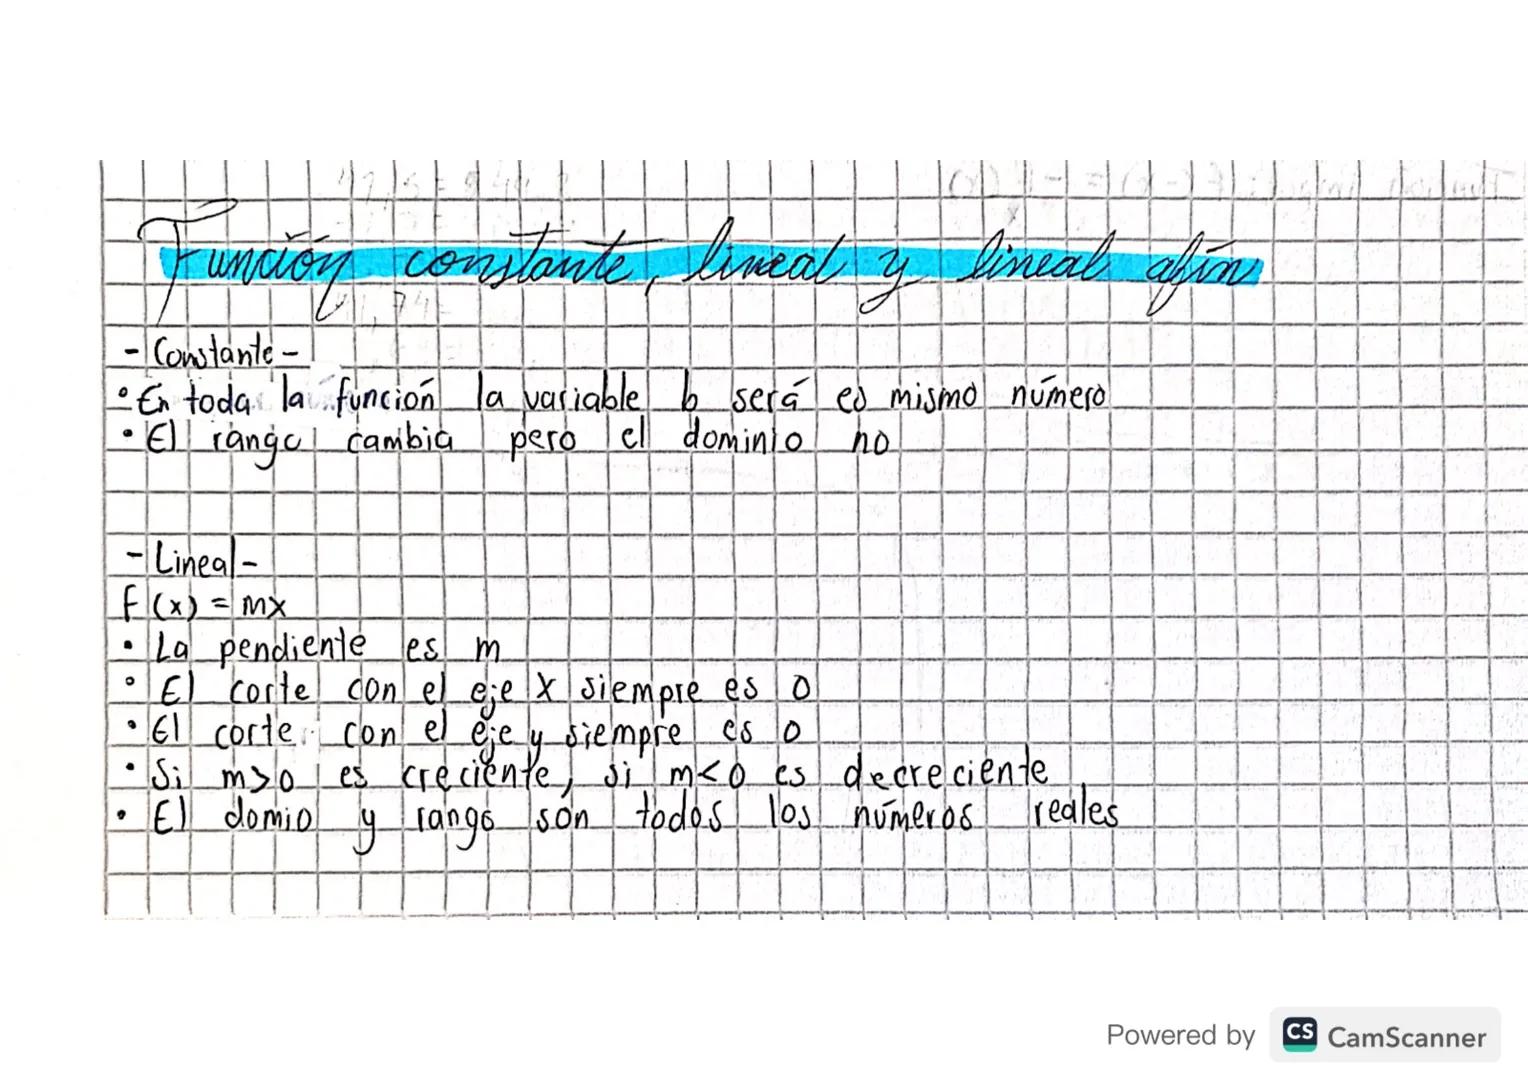 Función constante, lineal y lineal afín
- Constante -
• En toda la función la variable b será es mismo número
• El rango cambia pero el dominio no
- Lineal -
f(x) = mx
• La pendiente es m
• El corte con el eje x siempre es 0
• El corte con el eje y siempre es 0
• Si m>0 es creciente, si m<0 es decreciente
• El domio y rango son todos los números reales
Powered by CS CamScanner